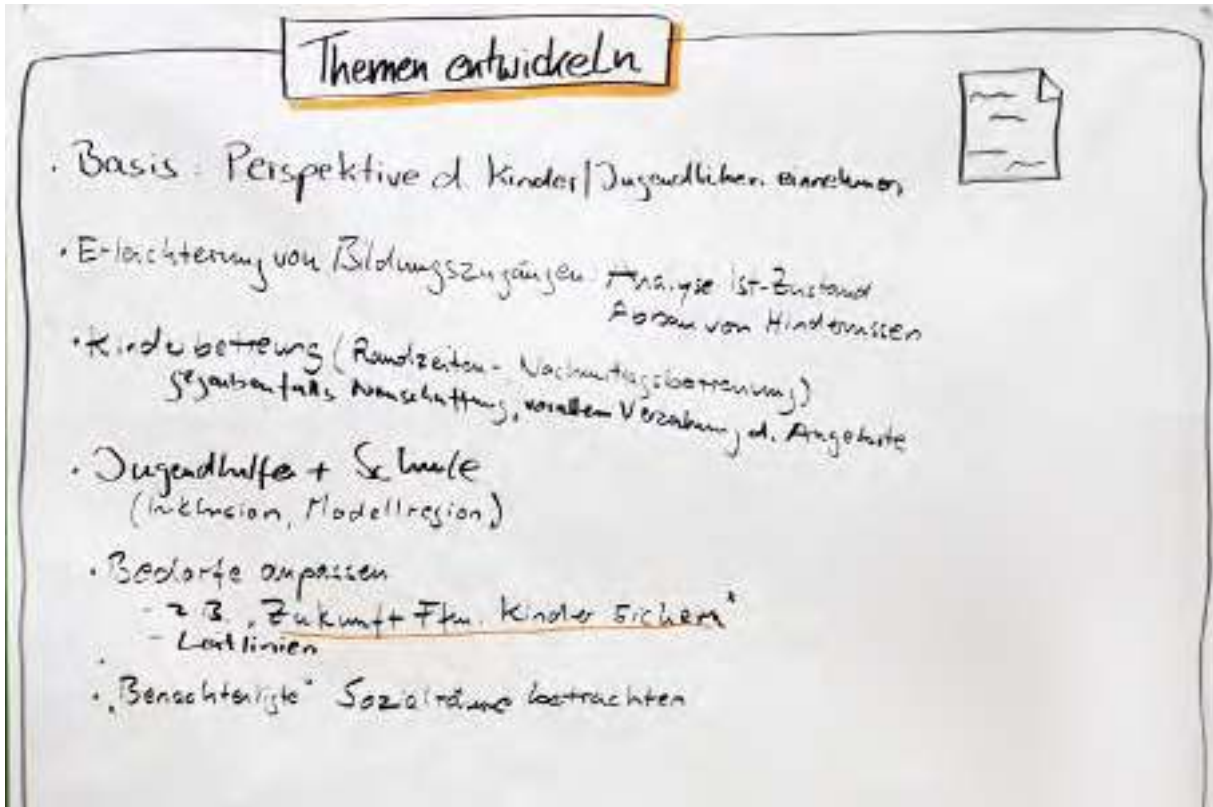 Themen entwickeln
· Basis: Perspektive d. Kinder/Jugendlichen einnehmen
· Erleichterung von Bildungszugängen: Analyse Ist-Zustand
Abbau von Hindernissen
· Kinderbetreuung (Randzeiten- Nachmittagsbetreuung)
gegebenfalls Neuschaffung, vorallem Verzahnung d. Angebote
· Jugendhilfe + Schule
(Inklusion, Modellregion)
· Bedarfe anpassen
- z.B. „Zukunft Kinder sichern"
- Leitlinien
· „Benachteiligte" Sozialräume betrachten